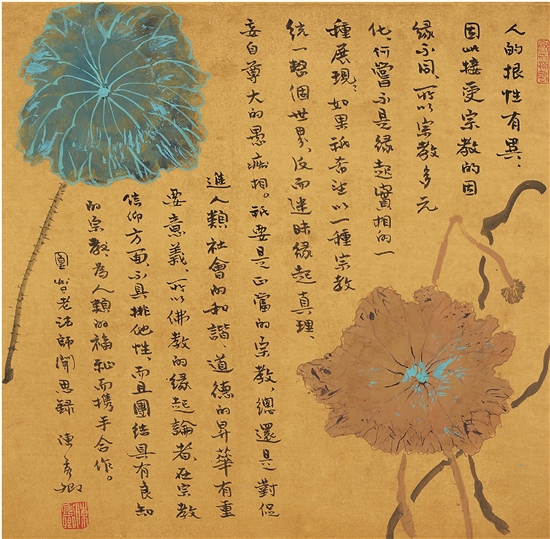 人的根性有異、
因此接受宗教的因
緣不同、所以宗教多元
化、何嘗不是緣起實相的一
種展現、如果祈希望以一種宗教
統一整個世界、反而迷昧緣起真理、
妄自尊大的愚痴相。祇要是正當的宗教、總還是對促
進人類社會的和諧、道德的昇華有重
要意義、所以佛教的緣起論者、在宗教
信仰方面、不具排他性、而且團結具有良知
的宗教、為人類的福祉而携手合作。
圓智老法師聞思錄 陳彥卿